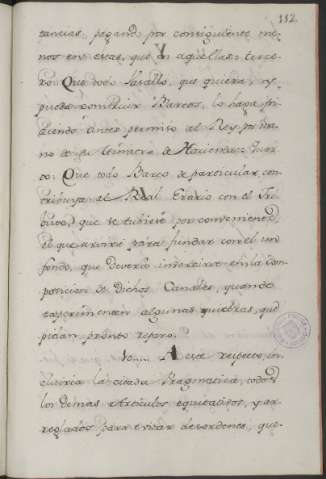 112
tancias, pagando por consiguiente me-
nos en estas, que en aquellas: terce-
ro. Que todo Vasallo, que quiera, y
pueda construir Barcos, lo haga, pi-
diendo antes permiso al Rey por ma-
no de su Ministro de Hacienda: Quar-
to: Que todo Barco de particular, con-
tribuya al Real Erario con el Tri-
buto, que se tubiere por conveniente,
el que servirá para fundar con él un
fondo, que deverá invertirse en la com-
posicion de dichos Canales, quando
experimenten algunas quiebras, que
pidan pronto reparo.
10..... A este respecto, in-
cluiria la citada Pragmatica, todos
los demas Articulos equitativos, y ar-
reglados para evitar desordenes, que-